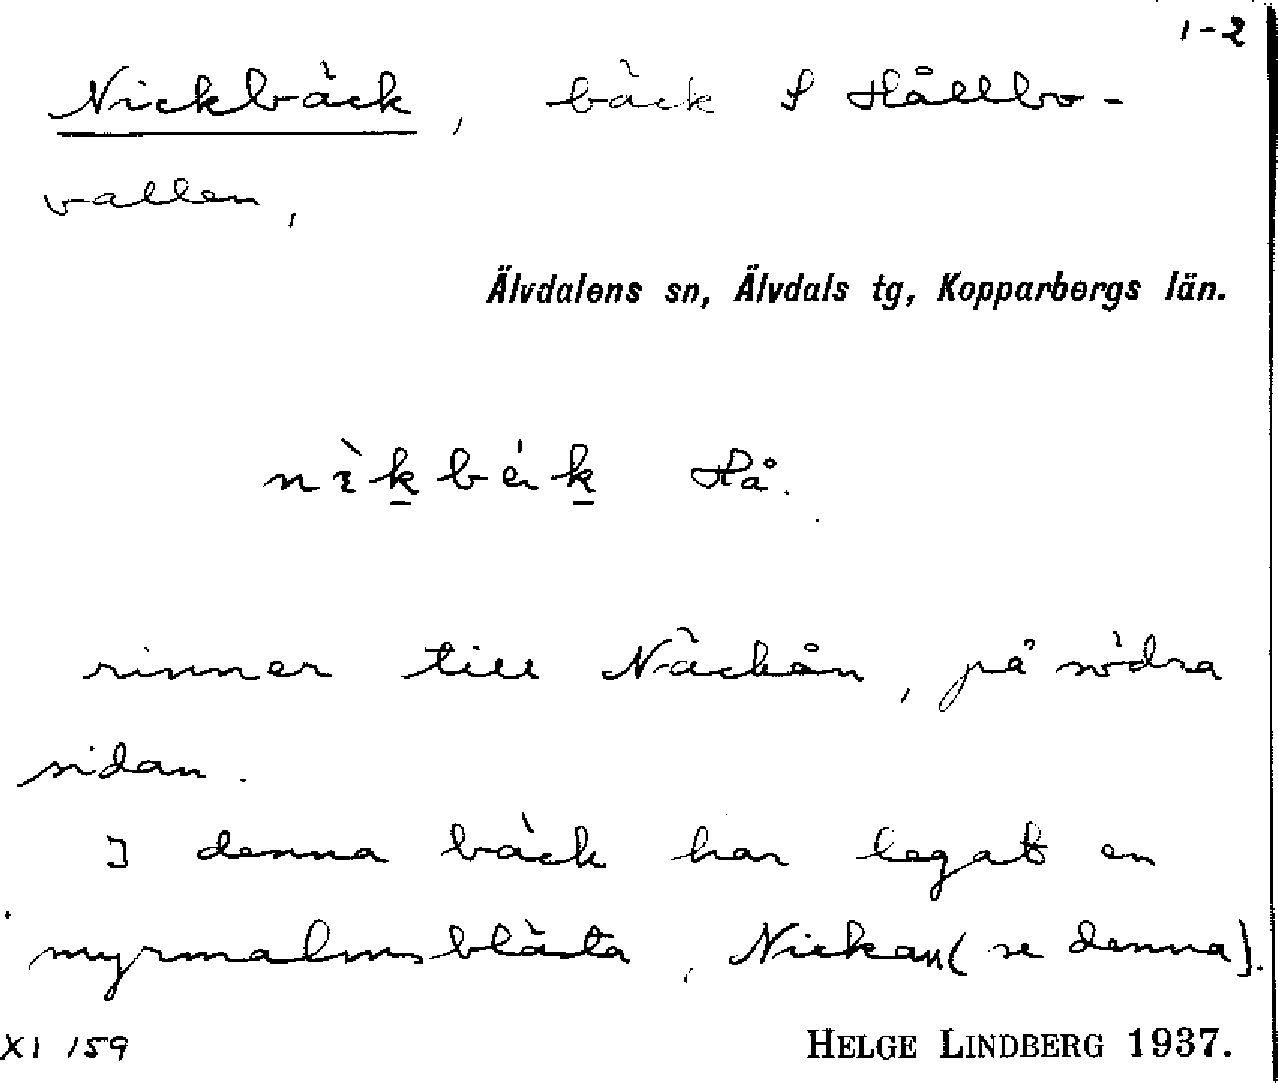 1-2
Nickbäck, bäck S Hållbo-
vallen,
Älvdalens sn, Älvdals tg, Kopparbergs län.
Hå.
rinner till Näckån, på södra
sidan.
I denna bäck har legat en
myrmalmsblästa, Nickan (se denna).
XI 159
HELGE LINDBERG 1937.